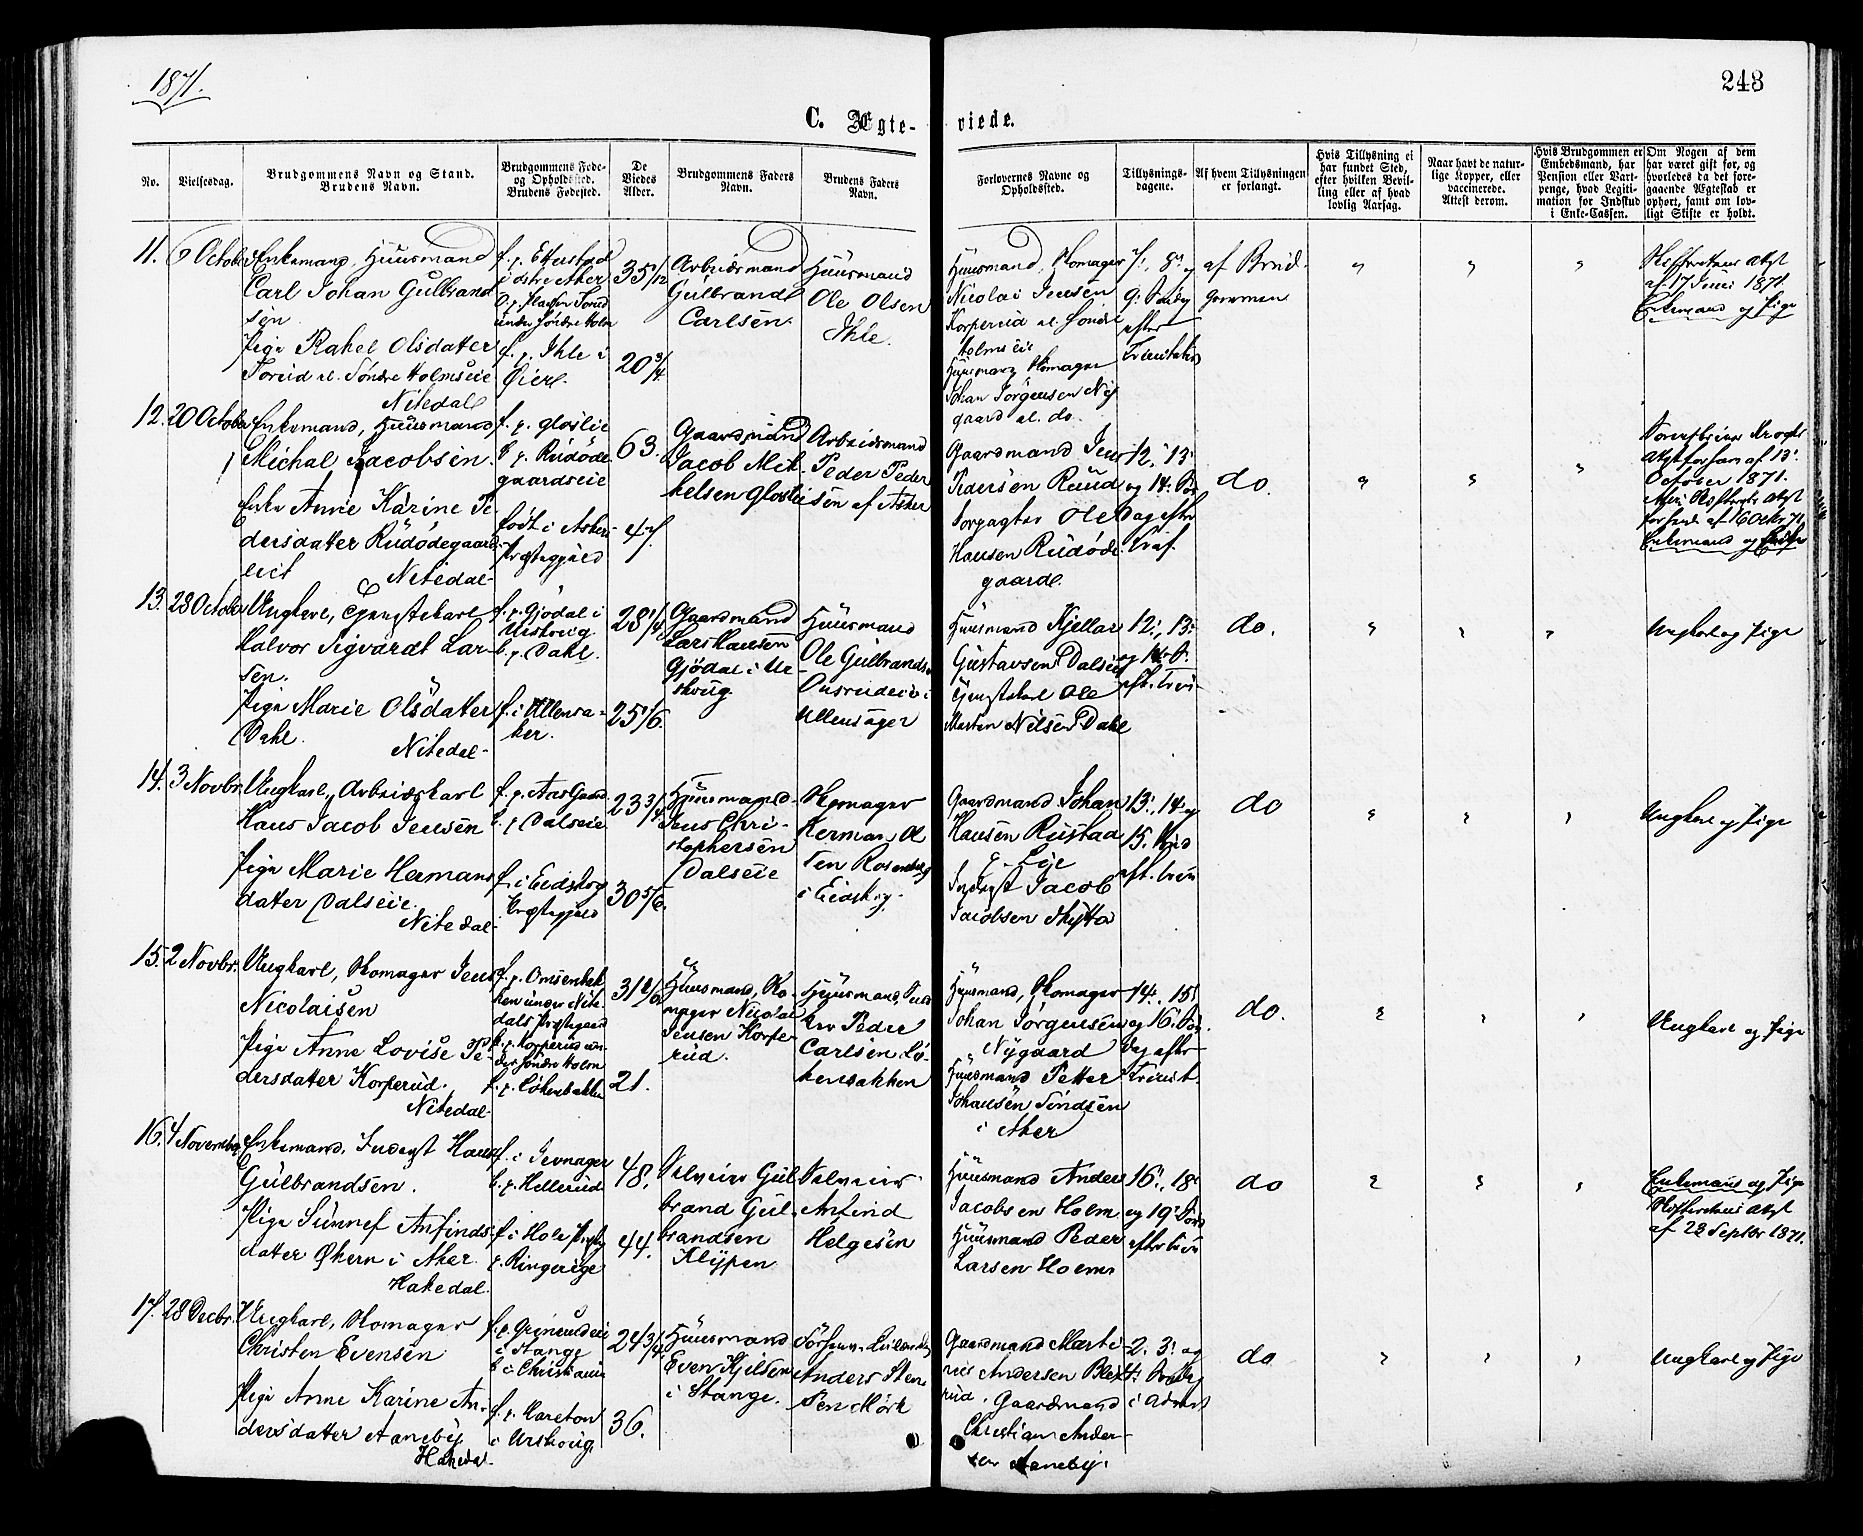 1871.
248
C. Ægte-
viede.
No.
Vielsesdag.
Brudgommens Navn og Stand.
Brudens Navn.
Brudgommens Føde-
og Opholdssted.
Brudens Fødested.
De
Viedes
Alder.
Brudgommens Faders
Navn.
Brudens Faders
Navn.
Forlovernes Navne og
Opholdssted.
Tillysnings-
dagene.
Af hvem Tillysningen
er forlangt.
Hvis Tillysning ei
har fundet Sted,
efter hvilken Bevil-
ling eller af hvad
lovlig Aarsag.
Naar havt de natur-
lige Kopper, eller
vaccinerede.
Attest derom.
Hvis Brudgommen er
Embedsmand, har
Pension eller Vart-
penge, hvad Legiti-
mation for Indskud
i Enke-Cassen.
Om Nogen af dem
har været gift før, og
hvorledes da det fore-
gaaende Ægteskab er
ophørt, samt om lov-
ligt Skifte er holdt.
11.
6 October
Enkemand, Huusmand
Carl Johan Gulbrand
sen
Pige Rahel Olsdater
Torud al. Søndre Holmseie
Nitedal
i Østre Aker
under Søndre Holm
f. p. Ihle i
35 5/12
20 3/4
Arbeidsmand
Gulbrand
Carlsen.
Huusmand
Ole Olsen
Ihle.
Huusmand, Skomager
Nicolai Jensen
Korperud al. Søndre
Holmseie
Huusmand Skomager
Johan Jørgensen Ny
gaard al. do.
7., 8. og
9. Søndg
efter
Trinitatis
af Brud-
gommen
"
"
"
Skifteretens Attest
af 17 Juni 1871.
Enkemand og Pige
12.
20 October
Enkemand, Huusmand
Michal Jacobsen.
Enke Anne Karine Pe
dersdater Rudødegaards
eiet
Nitedal-
f. p. Gloslie
b. p. Rudøde
gaardseie
født i Asker
Præstegjæld
63.
47.
Gaardmand
Jacob Mik
kelsen Gloslie
Arbeidsmand
Peder Peder
sen af Asker
Gaardmand Jens
Pedersen Ruud
Forpagter Ole
Hansen Rudøde
gaard.
12., 13.
og 14. Søn
dag efter
Trif.
do.
"
"
"
October 1871.
Enkemand og Enke
13.
28 October
Ungkarl, Tjenestekarl
Halvor Sigvardt Lar-
sen.
Pige Marie Olsdater
Dahl.
Nitedal-
f. p. Gjødal i
Urskoug
b. p. Dahl.
f. i Ullensa-
ker.
28 1/4
25 1/6.
Gaardmand
Lars Hansen
Gjødal i Ur
skoug.
Huusmand
Ole Gulbrands
Onsrudeie i
Ullensager
Huusmand Kjellar
Gustavsen Dalseie
Tjenestekarl Ole
Martin Nilsen Dahl
12., 13.
og 14. S.
eft. Trini-
do.
"
"
"
Ungkarl og Pige
14.
3 Novbr.
Ungkarl, Arbeidskarl
Hans Jacob Jensen
Pige Marie Hermans
dater Dalseie.
Nitedal-
f. p. Aas Gaard.
b. p. Dalseie
f. i Eidskog
Præstegjæld
23 3/4
30 5/6.
Huusmand
Jens Chri-
stophersen
Dalseie
Skomager
Herman Ol
sen Rosenberg
i Eidskog.
Gaardmand Johan
Hansen Rustad
Inderst Jacob
Jacobsen Skytta
13., 14. og
15. Sønd
eft. Trini
do
"
"
"
Ungkarl og Pige
15.
2 Novbr.
Ungkarl, Skomager Jens
Nicolaisen
Pige Anne Lovise Pe-
dersdatter Korperud.
Nitedal-
ken under Nite
dals Præstegaard
b. p. Korperud un-
der Søndre Holm
f. p. Løkenbakken
21.
Huusmand, Sko-
mager Nicolai
Jensen Korpe
rud.
Peder
Carlsen Lø-
kensakken
Huusmand, Skomager
Johan Jørgensen
Nygaard
Huusmand Petter
Johansen Sindsen
i Aker
14., 15.
og 16. Søn
dag efter
Trinit.
do.
"
"
"
Ungkarl og Pige
16.
4 November
Enkemand, Inderst Hans
Gulbrandsen.
Pige Sunnef Anfinds-
dater Økern i Aker
Hakedal.
f. i Jevnager
b. p. Hellerud
f. i Hole Præstg
p. Ringerige
48.
44.
Selveier Gul
brand Gul-
brandsen
Klypen
Selveier
Anfind
Helgesen
Huusmand Anders
Jacobsen Holm
Huusmand Peder
Larsen Holm
16., 18.
og 19. Sønd
efter Trini
do
"
"
"
Enkemand og Pige
Skifteretens Attest
af 28 Septbr 1871.
17.
28 Decbr.
Ungkarl, Skomager
Christen Evensen
Pige Anne Karine An-
dersdatter Aaneby
Hakedal
i Stange
b. i Christiania
f. p. Hareton
i Urskoug
24 3/4
36.
Huusmand
Even Kjelsen
i Stange.
Anders Sten
sen Mørk
Gaardmand Marti-
nus Andersen Blek
rud. Gaardmand
Christian Ander-
sen Aaneby.
2. 3. og
4. Søndg
i Advent
do
"
"
"
Ungkarl og Pige